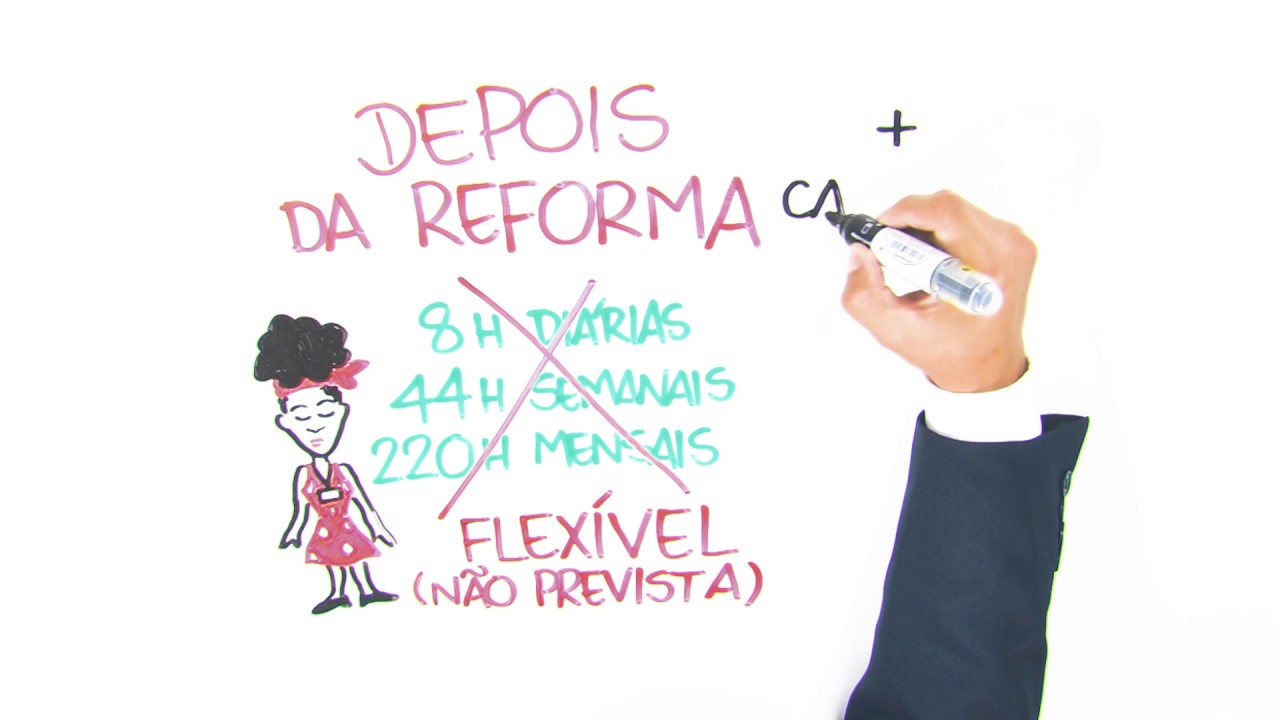 DEPOIS
DA REFORMA
8H DIÁRIAS
44H SEMANAIS
220H MENSAIS
FLEXÍVEL
(NÃO PREVISTA)
+
CA